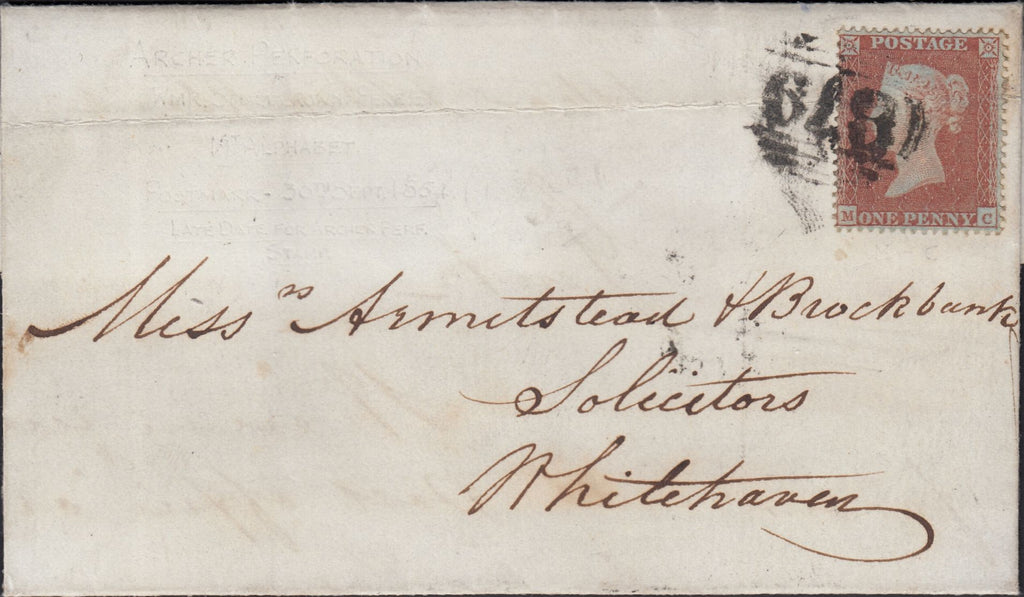 ARCHER PERFORATION
1ST ALPHABET
POSTMARK - 30TH SEPT. 1854
LATE DATE FOR ARCHER PERF.
STAMP.
POSTAGE
648
M ONE PENNY C
Missrs Armitstead & Brockbank
Solicitors
Whitehaven